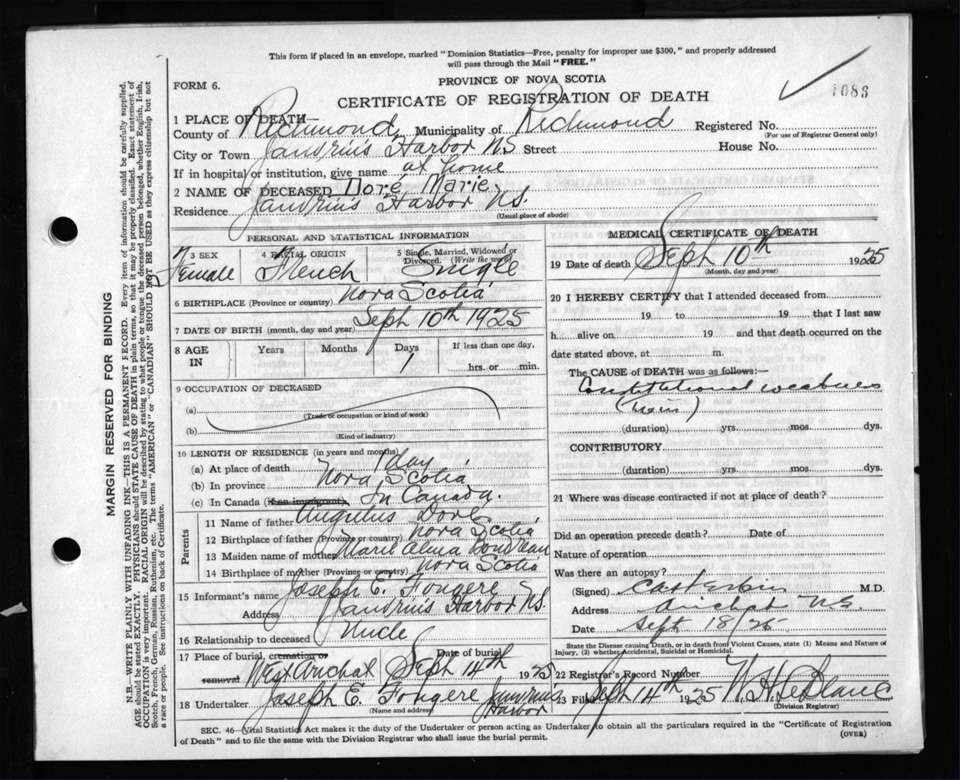 This form if placed in an envelope, marked "Dominion Statistics—Free, penalty for improper use $300," and properly addressed
will pass through the Mail "FREE."
PROVINCE OF NOVA SCOTIA
FORM 6.
CERTIFICATE OF REGISTRATION OF DEATH
1083
1 PLACE OF DEATH
County of Richmond Municipality of Richmond Registered No.
(For use of Registrar General only)
City or Town Janvrins Harbor NS Street House No.
If in hospital or institution, give name at home
2 NAME OF DECEASED Doré, Marie
Residence Janvrins Harbor NS.
(Usual place of abode)
PERSONAL AND STATISTICAL INFORMATION
3 SEX 4 RACIAL ORIGIN 5 Single, Married, Widowed or Divorced. (Write the word)
Female French Single
6 BIRTHPLACE (Province or country) Nova Scotia
7 DATE OF BIRTH (month, day and year) Sept 10th 1925
8 AGE IN Years Months Days 1 If less than one day, hrs. or min.
9 OCCUPATION OF DECEASED
(a)
(Trade or occupation or kind of work)
(b)
(Kind of industry)
10 LENGTH OF RESIDENCE (in years and months)
(a) At place of death 1 day
(b) In province Nova Scotia
(c) In Canada (if an immigrant) In Canada.
Parents
11 Name of father Doré
12 Birthplace of father (Province or country) Nova Scotia
13 Maiden name of mother Marie Alma Boudreau
14 Birthplace of mother (Province or country) Nova Scotia
15 Informant's name Joseph E. Fougere
Address Janvrins Harbor NS.
16 Relationship to deceased Uncle
17 Place of burial, cremation or removal West Arichat Date of burial Sept 14th 1925
18 Undertaker Joseph E. Fougere Janvrins Harbor
(Name and address)
MEDICAL CERTIFICATE OF DEATH
19 Date of death Sept 10th 1925
(Month, day and year)
20 I HEREBY CERTIFY that I attended deceased from
19 to 19 that I last saw
h alive on 19 and that death occurred on the
date stated above, at m.
The CAUSE OF DEATH was as follows:—
Constitutional weakness
(Twin)
(duration) yrs. mos. dys.
CONTRIBUTORY
(duration) yrs. mos. dys.
21 Where was disease contracted if not at place of death?
Did an operation precede death? Date of
Nature of operation
Was there an autopsy?
(Signed) M.D.
Address Arichat N.S.
Date Sept 18/25
State the Disease causing Death, or in death from Violent Causes, state (1) Means and Nature of
Injury, (2) whether Accidental, Suicidal or Homicidal.
22 Registrar's Record Number
23 Filed Sept 14th 1925 W. H. LeBlanc
(Division Registrar)
SEC. 46—Vital Statistics Act makes it the duty of the Undertaker or person acting as Undertaker to obtain all the particulars required in the "Certificate of Registration
of Death" and to file the same with the Division Registrar who shall issue the burial permit.
(OVER)
MARGIN RESERVED FOR BINDING
N.B.—WRITE PLAINLY WITH UNFADING INK—THIS IS A PERMANENT RECORD. Every item of information should be carefully supplied.
AGE should be stated EXACTLY. PHYSICIANS should STATE CAUSE OF DEATH in plain terms, so that it may be properly classified. Exact statement of
OCCUPATION is very important. RACIAL ORIGIN will be described by stating to what people or tongue the deceased person belonged, whether English, Irish,
Scotch, French, German, Russian, Ruthenian, etc. The terms "AMERICAN" or "CANADIAN" SHOULD NOT BE USED as they express citizenship but not
a race or people. See instructions on back of Certificate.